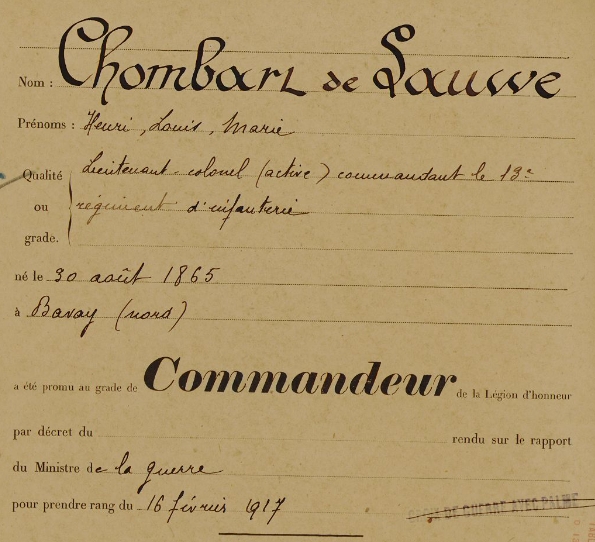 Nom : Chombart de Lauwe
Prénoms : Henri, Louis, Marie
Qualité ou grade. Lieutenant-colonel (active) commandant le 13e
régiment d'infanterie
né le 30 août 1865
à Bavay (nord)
a été promu au grade de Commandeur de la Légion d'honneur
par décret du rendu sur le rapport
du Ministre de la guerre
pour prendre rang du 16 février 1917
CROIX DE GUERRE AVEC PALME